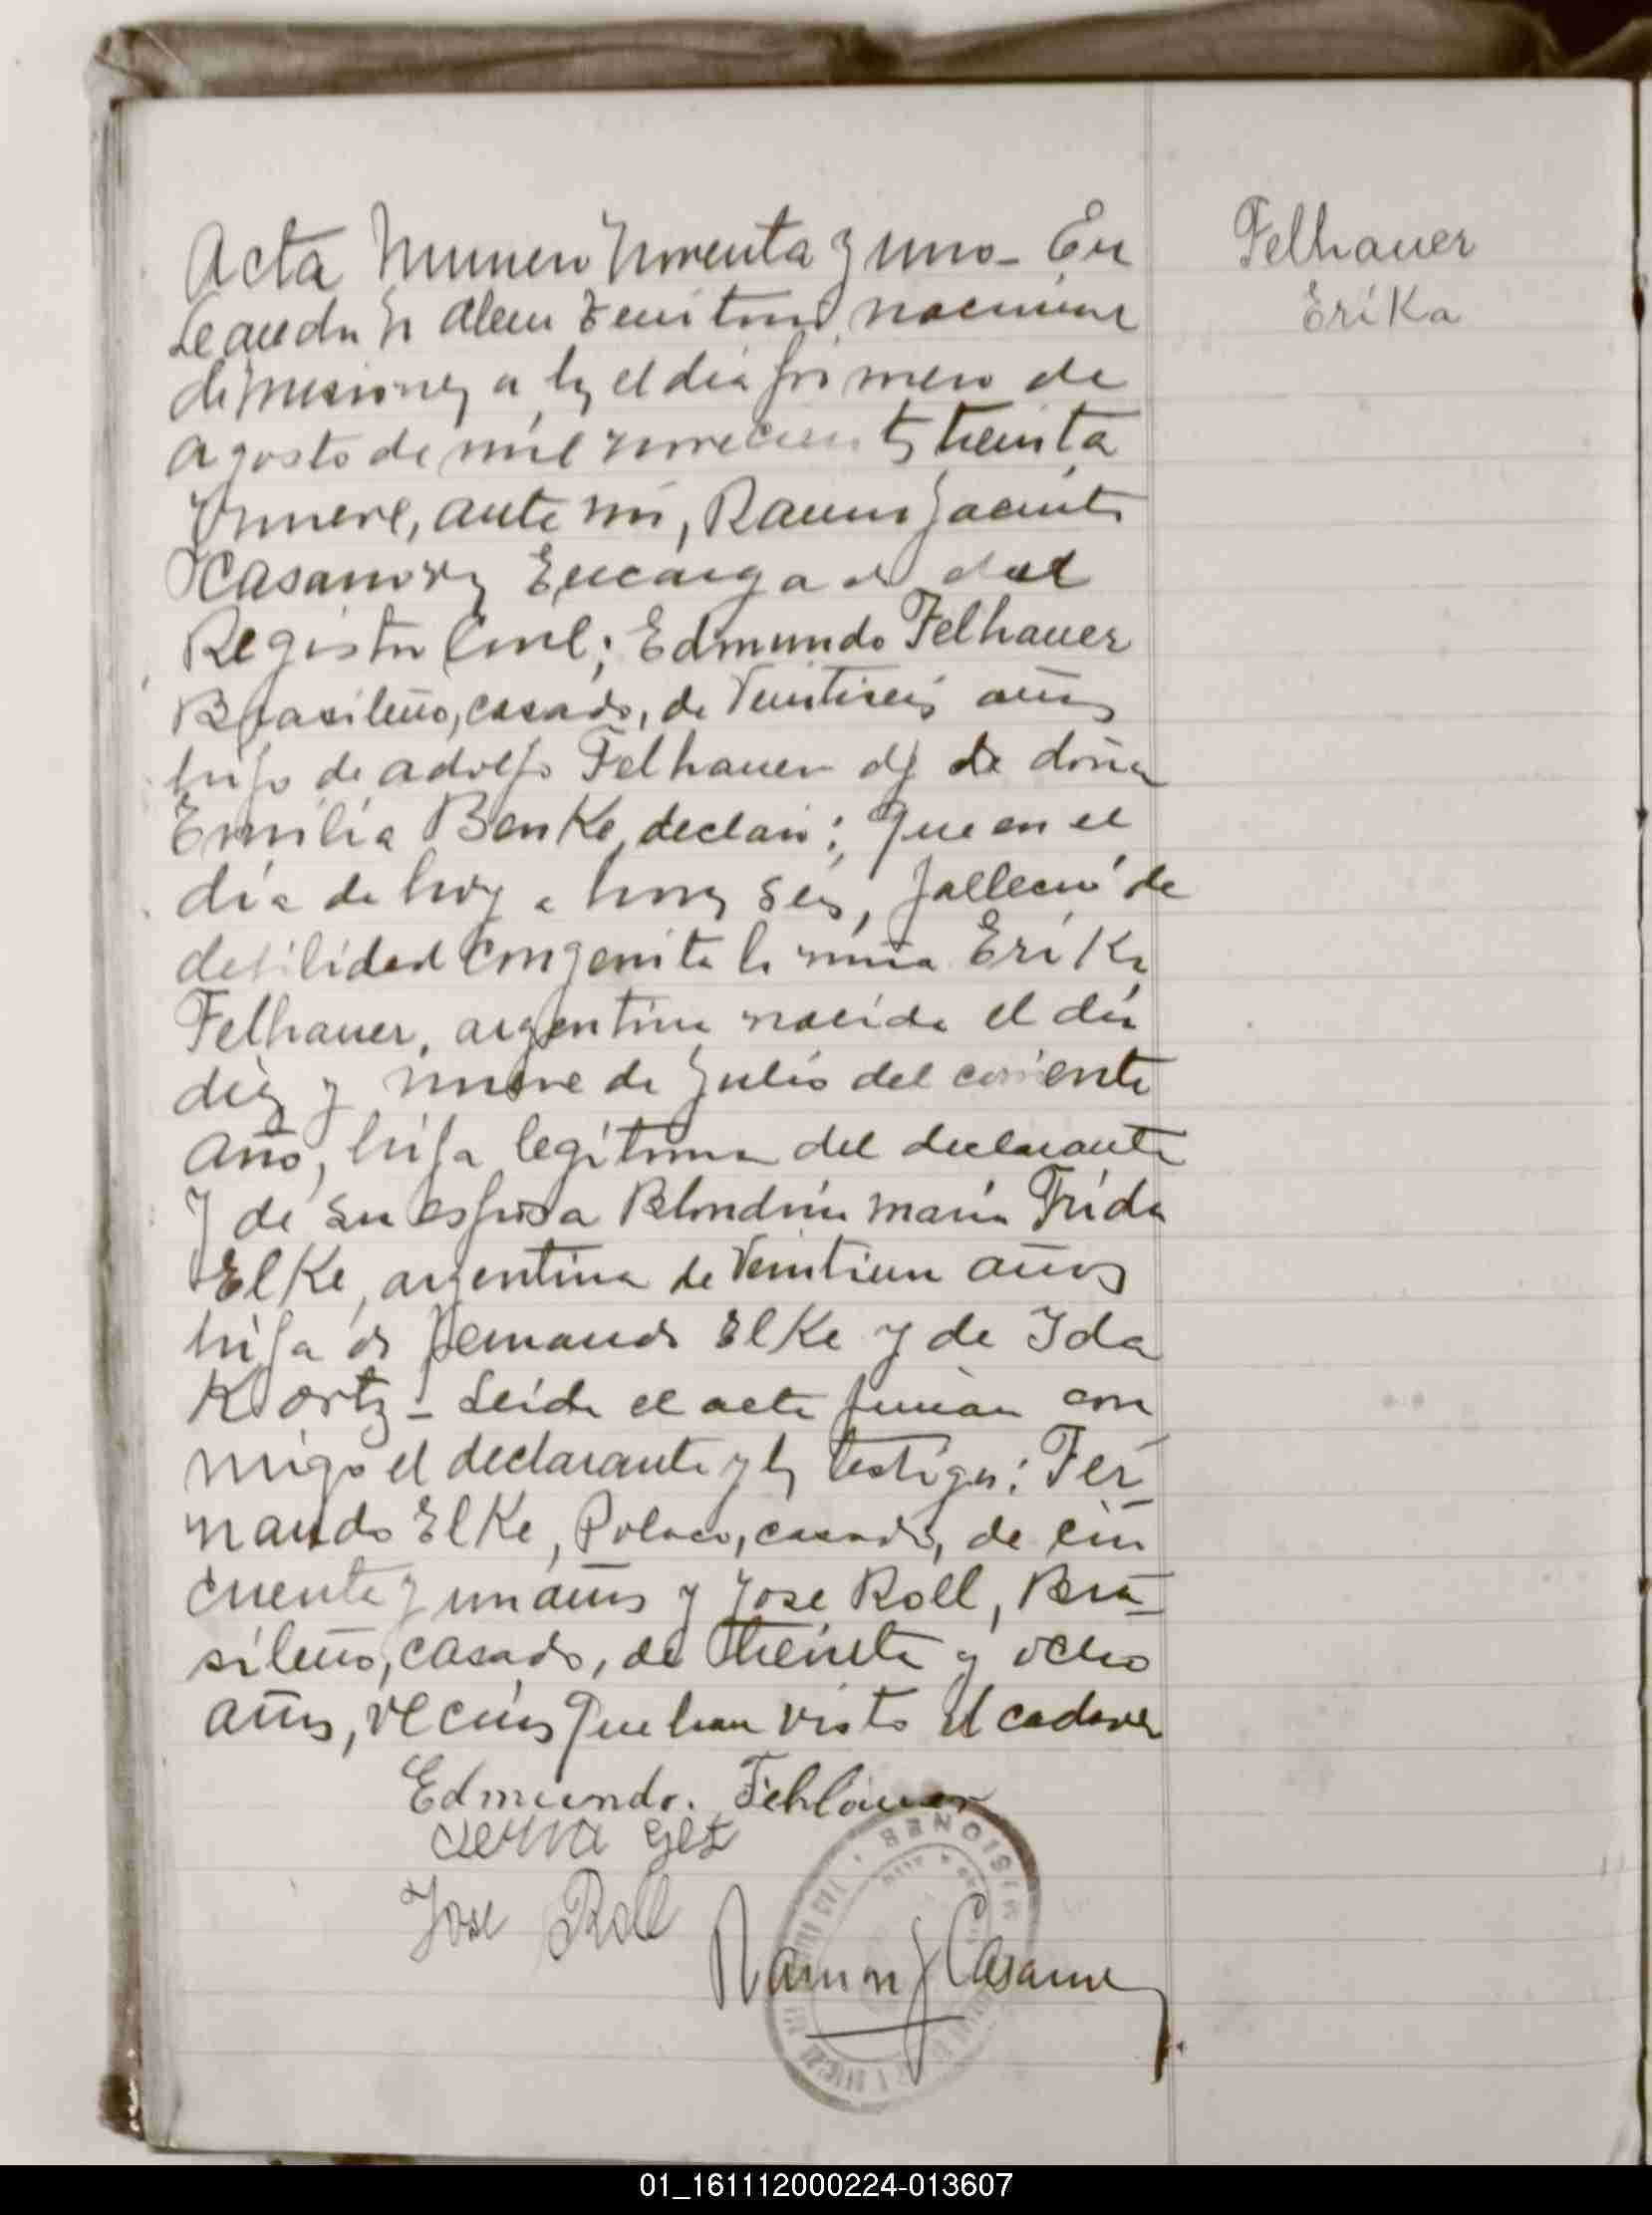 Acta Numero Noventa y uno - En
Felhauer
Erika
Leandro N Alem Territorio nacional
de Misiones a los el dia primero de
Agosto de mil novecientos treinta
y nueve, ante mi, Ramon Jacinto
Casanova Encargado del
Registro Civil; Edmundo Felhauer
Brasileño, casado, de Veintiseis años
hijo de Adolfo Felhauer y de doña
Emilia Benke, declaró; Que en el
día de hoy a horas seis, falleció de
debilidad congenita la niña Erika
Felhauer, argentina nacida el día
diez y nueve de Julio del corriente
Año, hija legítima del declarante
y de su esposa Blondina María Frida
Elke, argentina de Veintiun años
hija de Fernando Elke y de Ida
Kortz - Leida el acta firman con
migo el declarante y los testigos: Fer
nando Elke, Polaco, casado, de cin
cuenta y un años y Jose Roll, Bra-
sileño, casado, de treinta y ocho
años, vecinos que han visto el cadaver
Edmundo. Fehlauer
Jose Roll
Ramon J Casanova
MISIONES
01_161112000224-013607